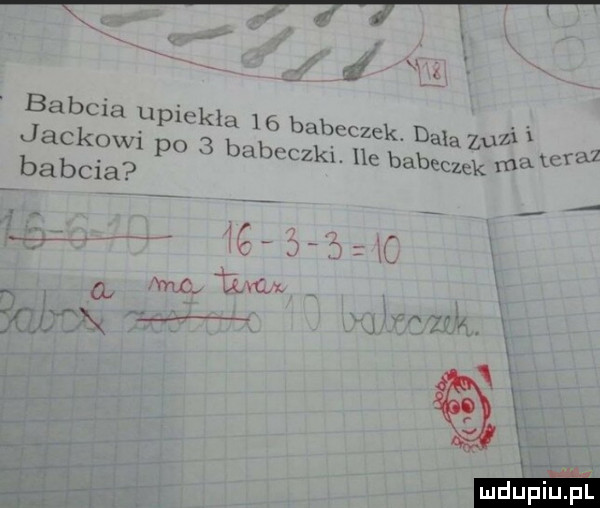 18
Babcia upiekła 16 babeczek. Dała Zuzi i
Jackowi po 3 babeczki. Ile babeczek ma teraz
babcia?
16-6=10
16-3-3=10
a ma teraz
10 babeczek.
mdupiu.pl